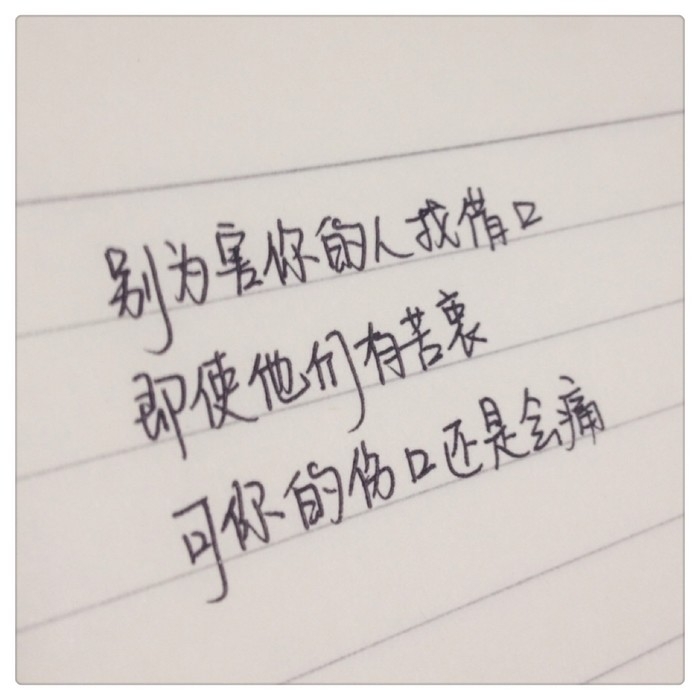 别为害你的人找借口
即使他们有苦衷
可你的伤口还是会痛